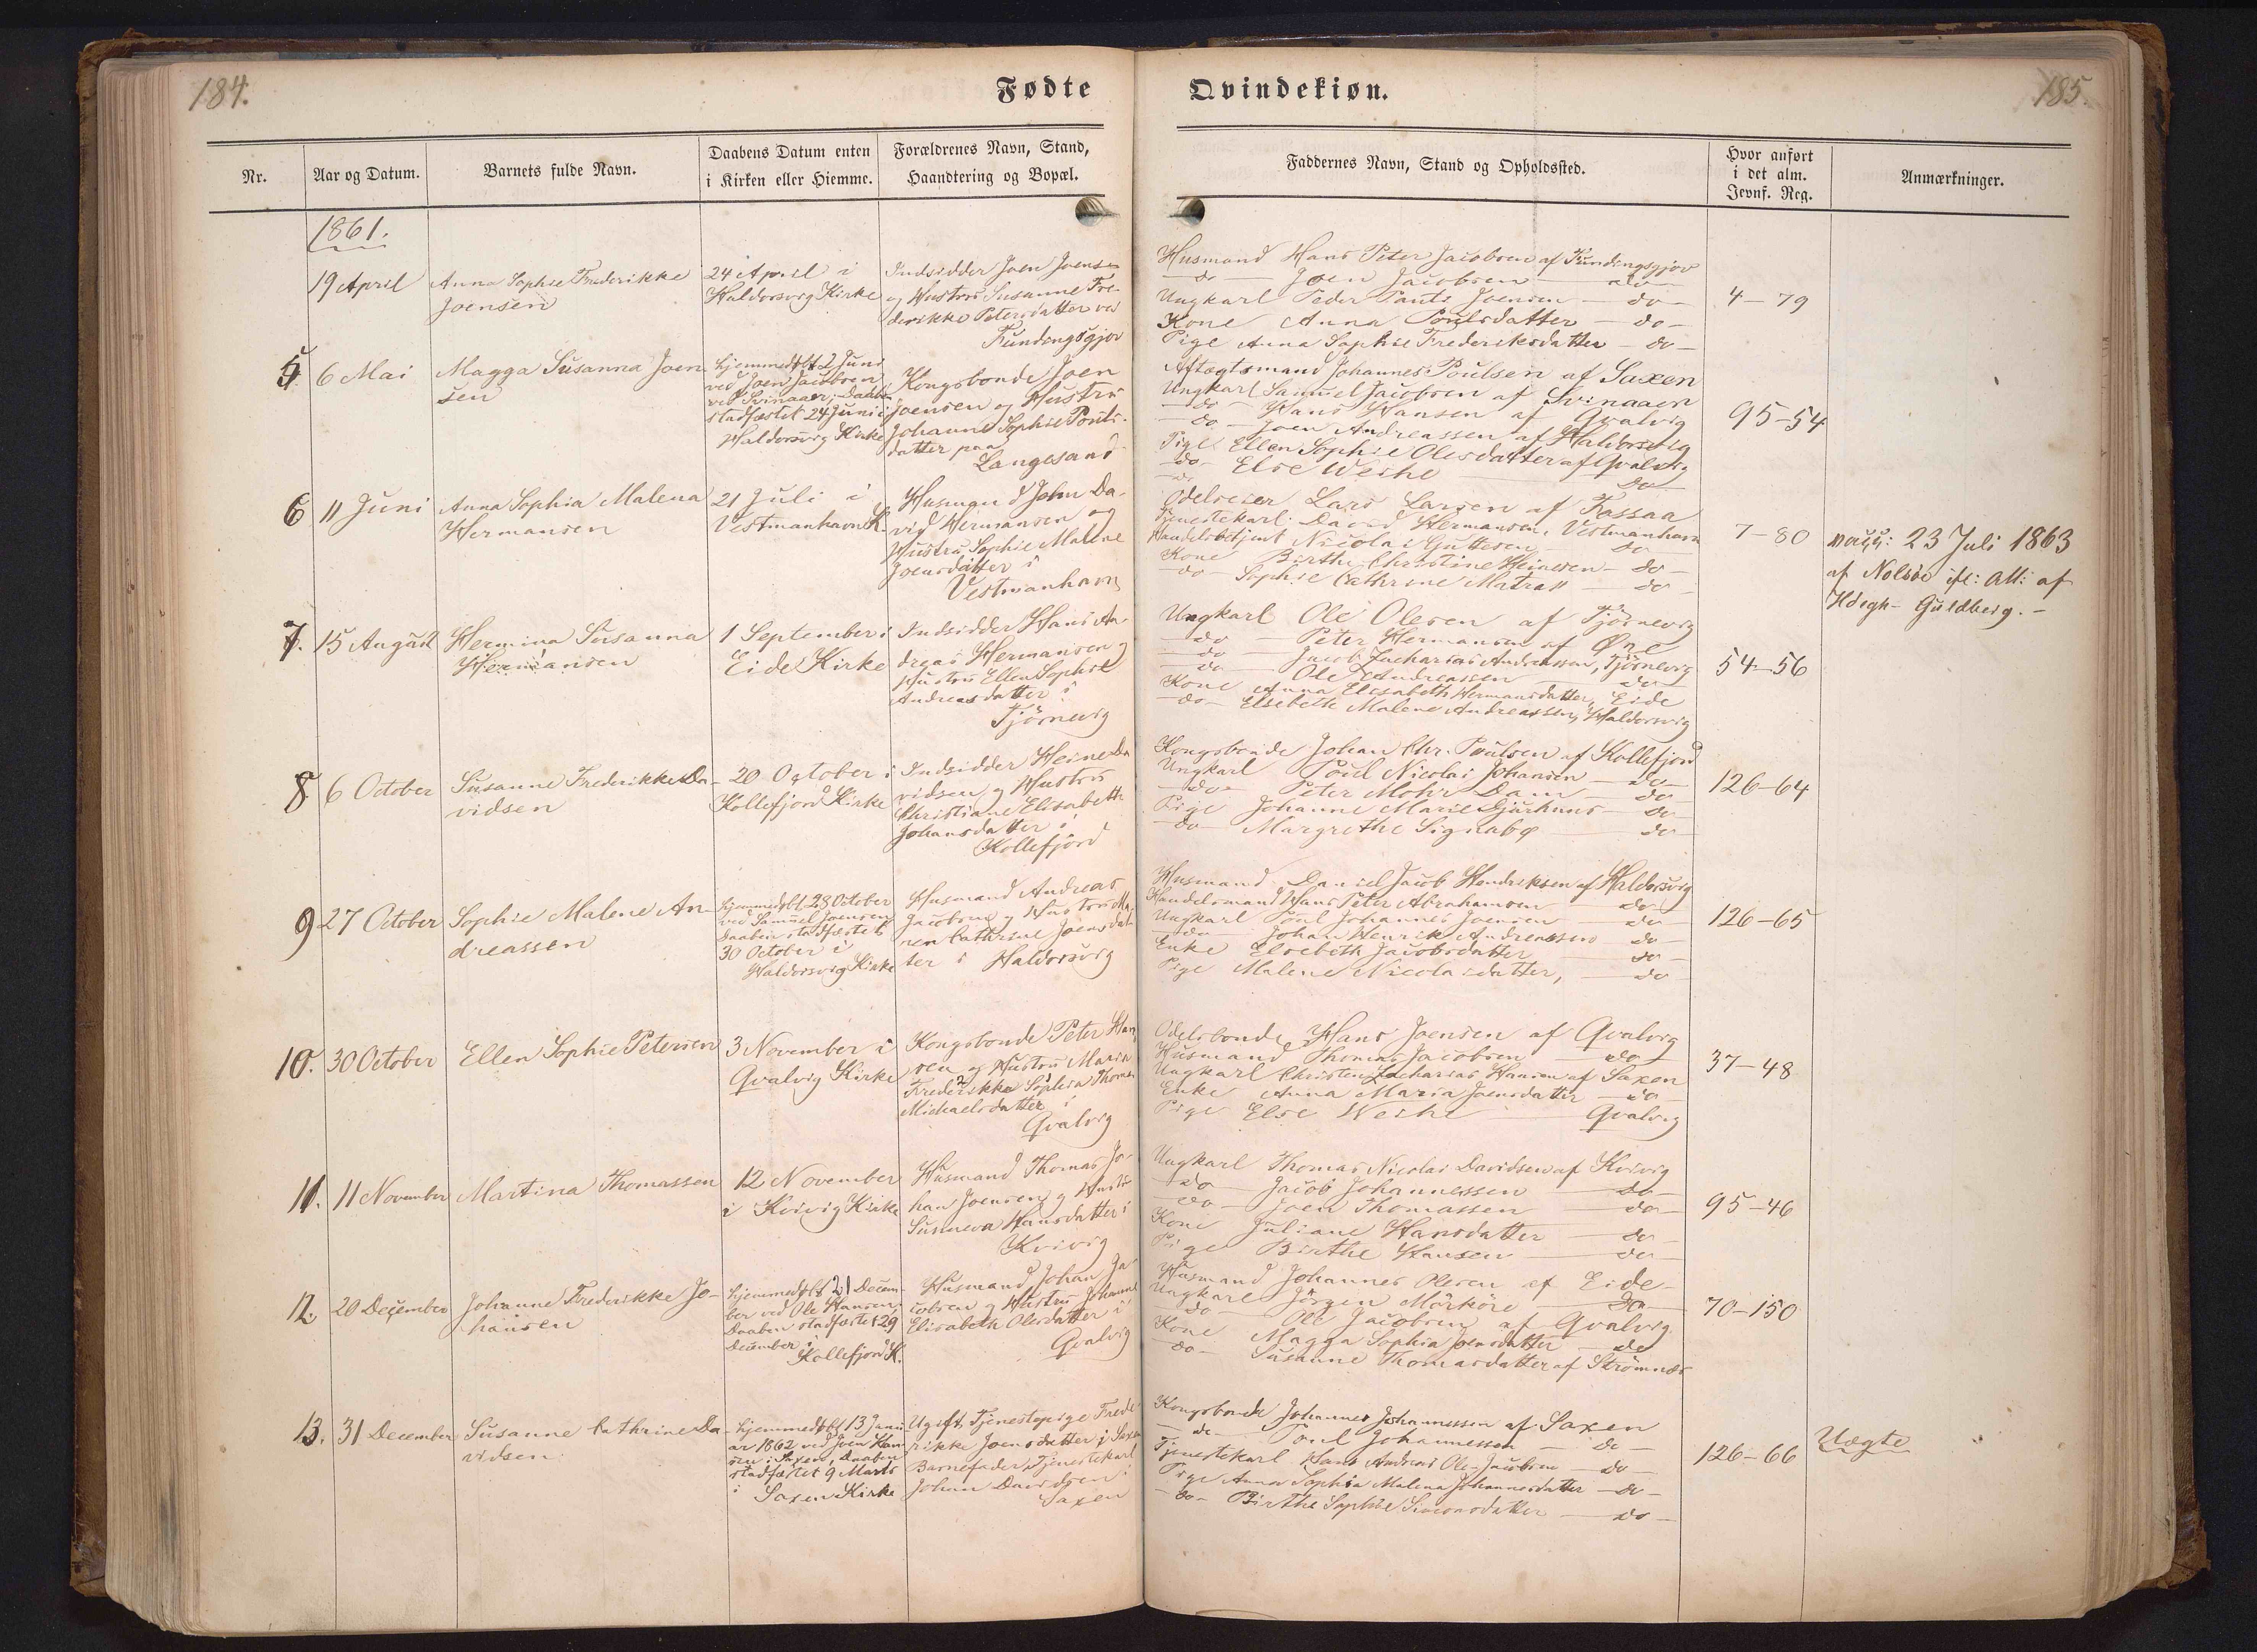 184.
Fødte
Nr.
Aar og Datum.
Barnets fulde Navn.
Daabens Datum enten
i Kirken eller Hiemme.
Forældrenes Navn, Stand,
Haandtering og Bopæl.
1861.
19 April
Anna Sophie Frederikke
Joensen
24 April i
Haldorsvig Kirke
Indsidder Joen Joensen
og Hustru Susanne Fre-
derikke Petersdatter ved
Fundingsgjov
5
6 Mai
Magga Susanna Joen-
sen
hjemmedøbt 2 Juni
ved Joen Jacobsen
ved Svinaaer; Daaben
stadfæstet 24 Juni i
Haldorsvig Kirke
Kongsbonde Joen
Joensen og Hustru
Johanne Sophie Pouls-
datter paa
Langesand
6
11 Juni
Anna Sophia Malena
Hermansen
21 Juli i
Vestmanhavn K.
Husmand John Da-
vid Hermansen og
Hustru Sophie Malene
Joensdatter i
Vestmanhavn
7.
15 August
Hermina Susanna
Hermansen
1 September i
Eide Kirke
Indsidder Hans An-
dreas Hermansen og
Hustru Ellen Sophie
Andreasdatter i
Tjörnevig
8
6 October
Susanne Frederikke Da-
vidsen
20 October i
Kollefjord Kirke
Indsidder Heine Da-
vidsen og Hustru
Christiane Elisabeth
Johansdatter i
Kollefjord
9
27 October
Sophie Malene An-
dreassen
hjemmedøbt 28 October
ved Samuel Joensen
Daaben stadfæstet
30 October i
Haldorsvig Kirke
Husmand Andreas
Jacobsen og Hustru Ma-
ren Cathrine Joensdat-
ter i Haldorsvig
10.
30 October
Ellen Sophie Petersen
3 November i
Qvalvig Kirke
Kongsbonde Peter Han-
sen og Hustru Maria
Frederikke Sophia Thomas
Michaelsdatter i
Qvalvig
11.
11 November
Martina Thomassen
12 November
i Kvivig Kirke
Husmand Thomas Jo-
han Joensen og Hustru
Susanna Hansdatter i
Kvivig
12.
20 December
Johanne Frederikke Jo-
hansen
hjemmedøbt 21 Decem-
ber ved Ole Hansen;
Daaben stadfæstet 29
December i
Kollefjord K.
Husmand Johan Ja-
cobsen og Hustru Johanne
Elisabeth Olesdatter i
Qvalvig
13.
31 December
Susanne Cathrine Da-
vidsen
hjemmedøbt 13 Janu-
ar 1862 ved Joen Han-
sen i Saxen, Daaben
stadfæstet 9 Marts
i Saxen Kirke
Ugift Tjenestepige Frede-
rikke Joensdatter i Saxen
Barnefader, Tjenestekarl
Johan Davidsen i
Saxen
Qvindekiøn.
185.
Faddernes Navn, Stand og Opholdssted.
Hvor anført
i det alm.
Jevnf. Reg.
Anmærkninger.
Husmand Hans Peter Jacobsen af Fundingsgjov
do - Joen Jacobsen - do -
Ungkarl Peder Pauli Joensen - do -
Kone Anna Poulsdatter - do -
Pige Anna Sophie Frederiksdatter - do -
4 - 79
Aftægtsmand Johannes Poulsen af Saxen
Ungkarl Samuel Jacobsen af Svinaaer
do - Hans Hansen af Qvalvig
do - Joen Andreassen af Haldorsvig
Pige Ellen Sophie Olesdatter af Qvalvig
do - Else Weihe - do
95-54
Odelseier Lars Larsen af Fassaa
Tjenestekarl David Hermansen, Vestmanhavn
Handelsbetjent Nicolai Guttesen do
Kone Birthe Christine Heinesen - do -
do - Sophie Cathrine Matras - do -
7-80
vacc: 23 Juli 1863
af Nolsöe if: Att: af
Hdsgh- Guldberg. -
Ungkarl Ole Olesen af Tjörnevig
do - Peter Hermansen af Øre
do - Jacob Zacharias Andreassen, Tjörnevig
do Ole Andreassen do
Kone Anna Elisabeth Hermansdatter, Eide
do - Elsebeth Malene Andreassen, Haldorsvig
54-56
Kongsbonde Johan Chr. Poulsen af Kollefjord
Ungkarl Poul Nicolai Johansen - do -
do - Peter Mohr Dam - do
Pige Johanne Marie Djurhuus - do
do - Margrethe Signabø - do
126-64
Husmand Daniel Jacob Hendriksen af Haldorsvig
Handelsmand Hans Peter Abrahamsen - do -
Ungkarl Poul Johannes Joensen do
do Johan Henrik Andreassen do -
Enke Elsebeth Jacobsdatter do -
Pige Malene Nicolaidatter, - do
126-65
Odelsbonde Hans Joensen af Qvalvig
Husmand Thomas Jacobsen - do -
Ungkarl Christen Zacharias Hansen af Saxen
Enke Anna Maria Joensdatter - do -
Pige Else Weihe Qvalvig
37-48
Ungkarl Thomas Nicolai Davidsen af Kvivig
do - Jacob Johannessen - do -
do - Joen Thomassen - do -
Kone Juliane Hansdatter - do -
Pige Birthe Hansen - do -
95-46
Husmand Johannes Olesen af Eide -
Ungkarl Jörgen Mörköre - do -
do - Ole Jacobsen af Qvalvig
Kone Magga Sophia Joensdatter - do
do - Susanne Thomasdatter af Strömnæs
70-150
Kongsbonde Johannes Johannessen af Saxen
do - Poul Johannessen - do -
Tjenestekarl Hans Andreas Ole-Jacobsen - do -
Pige Anna Sophia Malena Johannesdatter - do -
do - Birthe Sophie Simonsdatter - do -
126-66
Uægte